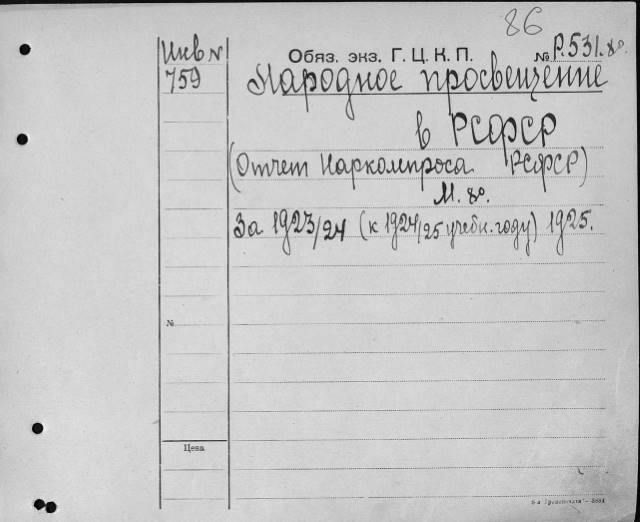 86
Инв N
759
Обяз. экз. Г. Ц. К. П. № Р.531.8º.
Народное просвещение
в РСФСР
(Отчет Наркомпроса РСФСР)
М. 8º.
За 1923/24 (к 1924/25 учебн. году) 1925.
№
Цена